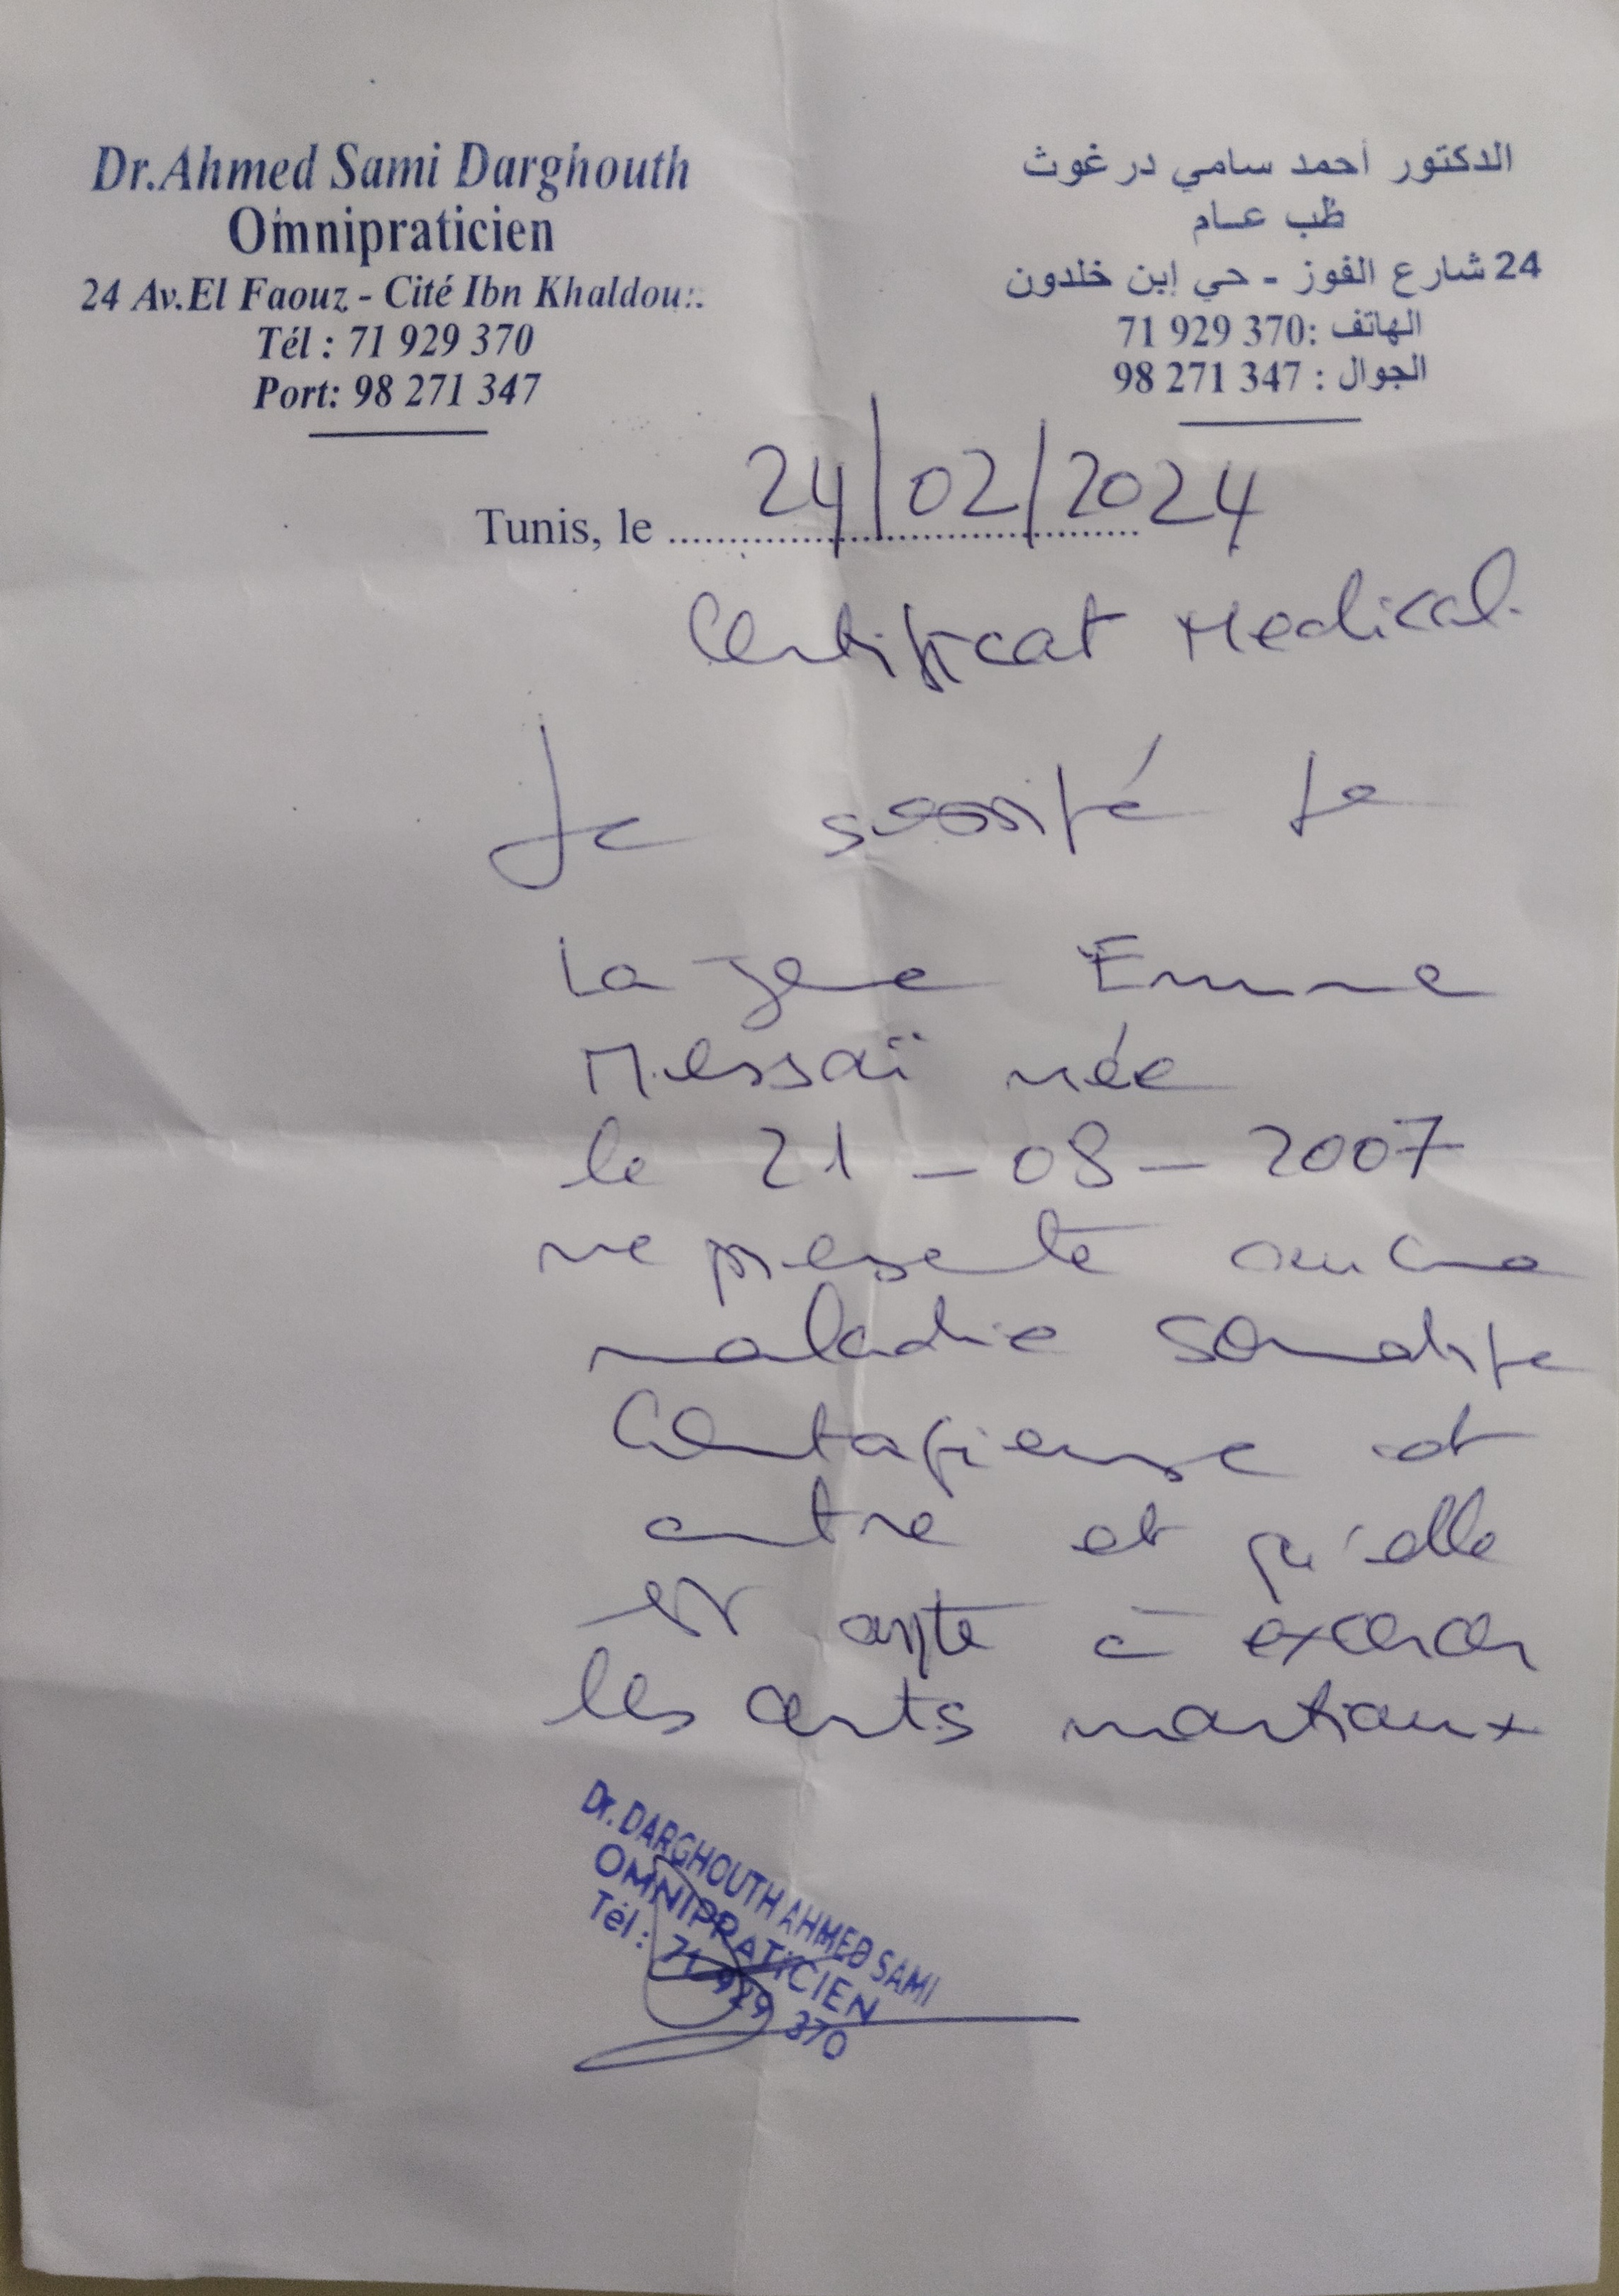 Dr.Ahmed Sami Darghouth
Omnipraticien
24 Av.El Faouz - Cité Ibn Khaldou
Tél : 71 929 370
Port: 98 271 347
الدكتور أحمد سامي درغوث
طب عام
24 شارع الفوز - حي إبن خلدون
الهاتف :370 929 71
الجوال : 347 271 98
Tunis, le 24/02/2024
Certificat Medical.
Je
la Emna
Messaï née
le 21-08-2007
ne presente aucune
maladie
Contagieuse et
autre et qu'elle
est apte à exercer
les arts martiaux
Dr. DARGHOUTH AHMED SAMI
OMNIPRATICIEN
Tél : 71 929 370